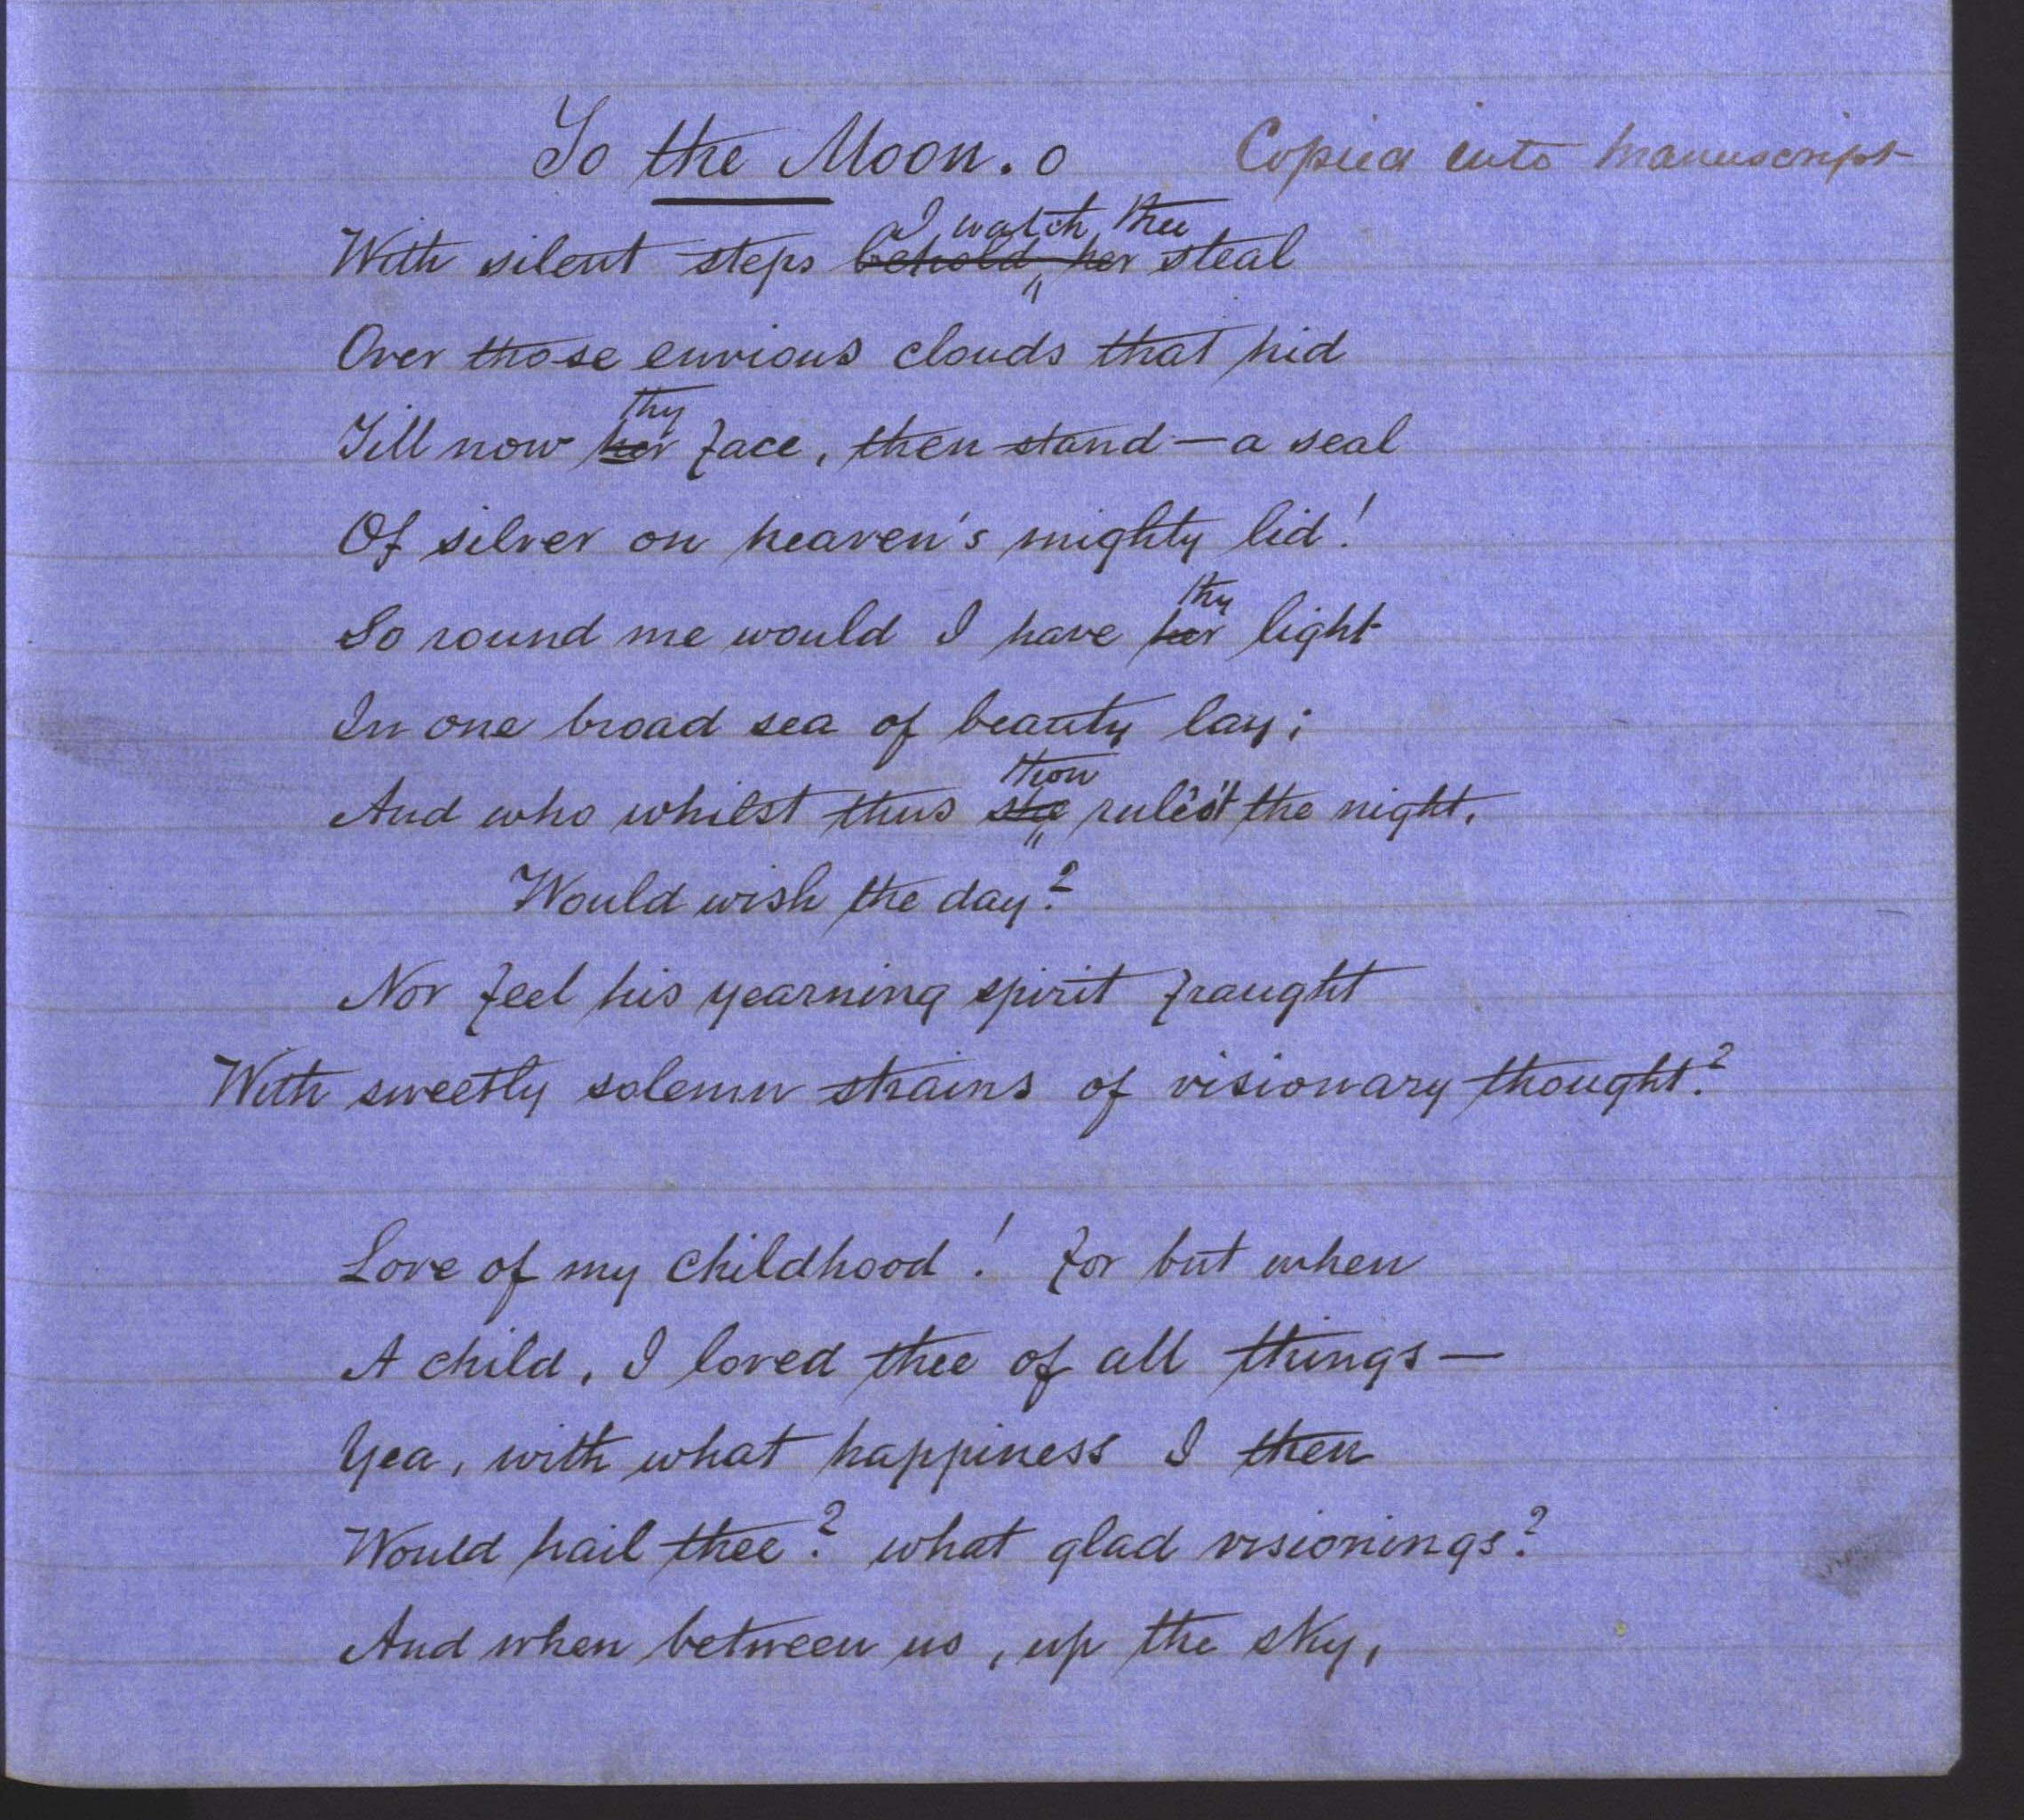 To the Moon. o Copied into Manuscript
I watch thee
With silent steps behold her steal
Over those envious clouds that hid
thy
Till now her face, then stand — a seal
Of silver on heaven's mighty lid!
thy
So round me would I have her light
In one broad sea of beauty lay;
thou
And who whilst thus she rul'st the night,
Would wish the day?
Nor feel his yearning spirit fraught
With sweetly solemn strains of visionary thought?
Love of my childhood! for but when
A child, I loved thee of all things —
Yea, with what happiness I then
Would hail thee? what glad visionings?
And when between us, up the sky,